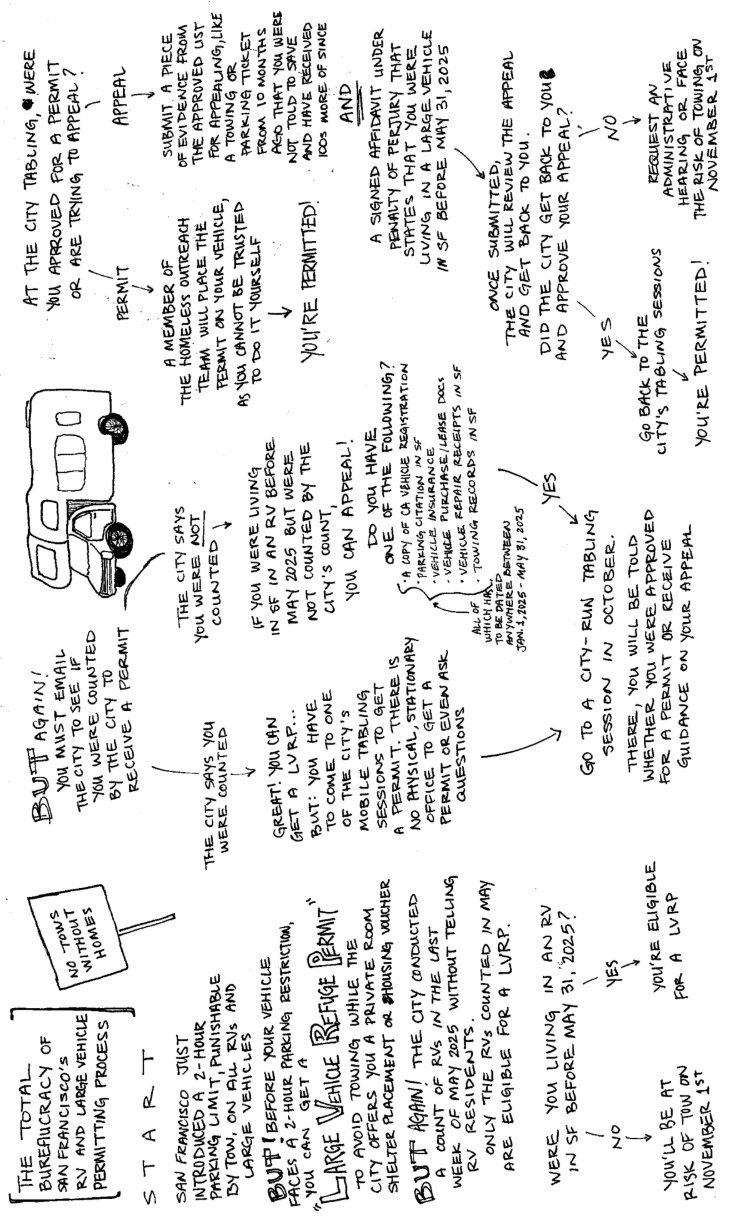 THE TOTAL
BUREAUCRACY OF
SAN FRANCISCO'S
RV AND LARGE VEHICLE
PERMITTING PROCESS
NO TOWS
WITHOUT
HOMES
START
SAN FRANCISCO JUST
INTRODUCED A 2-HOUR
PARKING LIMIT, PUNISHABLE
BY TOW, ON ALL RVs AND
LARGE VEHICLES
BUT! BEFORE YOUR VEHICLE
FACES A 2-HOUR PARKING RESTRICTION,
YOU CAN GET A
"LARGE VEHICLE REFUGE PERMIT"
TO AVOID TOWING WHILE THE
CITY OFFERS YOU A PRIVATE ROOM
SHELTER PLACEMENT OR HOUSING VOUCHER
BUT AGAIN! THE CITY CONDUCTED
A COUNT OF RVs IN THE LAST
WEEK OF MAY 2025 WITHOUT TELLING
RV RESIDENTS.
ONLY THE RVs COUNTED IN MAY
ARE ELIGIBLE FOR A LVRP.
WERE YOU LIVING IN AN RV
IN SF BEFORE MAY 31, 2025?
NO
YOU'LL BE AT
RISK OF TOW ON
NOVEMBER 1ST
YES
YOU'RE ELIGIBLE
FOR A LVRP
BUT AGAIN!
YOU MUST EMAIL
THE CITY TO SEE IF
YOU WERE COUNTED
BY THE CITY TO
RECEIVE A PERMIT
THE CITY SAYS YOU
WERE COUNTED
GREAT! YOU CAN
GET A LVRP...
BUT: YOU HAVE
TO COME TO ONE
OF THE CITY'S
MOBILE TABLING
SESSIONS TO GET
A PERMIT. THERE IS
NO PHYSICAL, STATIONARY
OFFICE TO GET A
PERMIT OR EVEN ASK
QUESTIONS
THE CITY SAYS
YOU WERE NOT
COUNTED
IF YOU WERE LIVING
IN SF IN AN RV BEFORE
MAY 2025 BUT WERE
NOT COUNTED BY THE
CITY'S COUNT,
YOU CAN APPEAL!
DO YOU HAVE
ONE OF THE FOLLOWING?
· A COPY OF CA VEHICLE REGISTRATION
· PARKING CITATION IN SF
· VEHICLE INSURANCE
· VEHICLE PURCHASE/LEASE DOCS
· VEHICLE REPAIR RECEIPTS IN SF
· TOWING RECORDS IN SF
ALL OF
WHICH HAVE
TO BE DATED
ANYWHERE BETWEEN
JAN. 1, 2025 - MAY 31, 2025
YES
GO TO A CITY-RUN TABLING
SESSION IN OCTOBER.
THERE, YOU WILL BE TOLD
WHETHER YOU WERE APPROVED
FOR A PERMIT OR RECEIVE
GUIDANCE ON YOUR APPEAL
AT THE CITY TABLING, WERE
YOU APPROVED FOR A PERMIT
OR ARE TRYING TO APPEAL?
PERMIT
A MEMBER OF
THE HOMELESS OUTREACH
TEAM WILL PLACE THE
PERMIT ON YOUR VEHICLE,
AS YOU CANNOT BE TRUSTED
TO DO IT YOURSELF
YOU'RE PERMITTED!
APPEAL
SUBMIT A PIECE
OF EVIDENCE FROM
THE APPROVED LIST
FOR APPEALING, LIKE
A TOWING OR
PARKING TICKET
FROM 10 MONTHS
AGO THAT YOU WERE
NOT TOLD TO SAVE
AND HAVE RECEIVED
100s MORE OF SINCE
AND
A SIGNED AFFIDAVIT UNDER
PENALTY OF PERJURY THAT
STATES THAT YOU WERE
LIVING IN A LARGE VEHICLE
IN SF BEFORE MAY 31, 2025
ONCE SUBMITTED,
THE CITY WILL REVIEW THE APPEAL
AND GET BACK TO YOU.
DID THE CITY GET BACK TO YOU
AND APPROVE YOUR APPEAL?
YES
GO BACK TO THE
CITY'S TABLING SESSIONS
YOU'RE PERMITTED!
NO
REQUEST AN
ADMINISTRATIVE
HEARING OR FACE
THE RISK OF TOWING ON
NOVEMBER 1ST